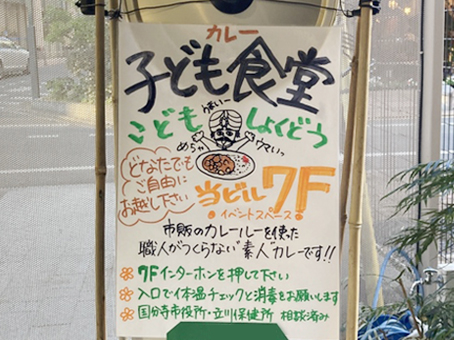 カレー
子ども食堂
こども しょくどう
うまいー
めちゃ ウマいっ
どなたでも
ご自由に
お越し下さい
当ビル 7F
イベントスペース
市販のカレールーを使った
職人がつくらない"素人"カレーです!!
7Fインターホンを押して下さい
入口で体温チェックと消毒をお願いします
国分寺市役所・立川保健所 相談済み